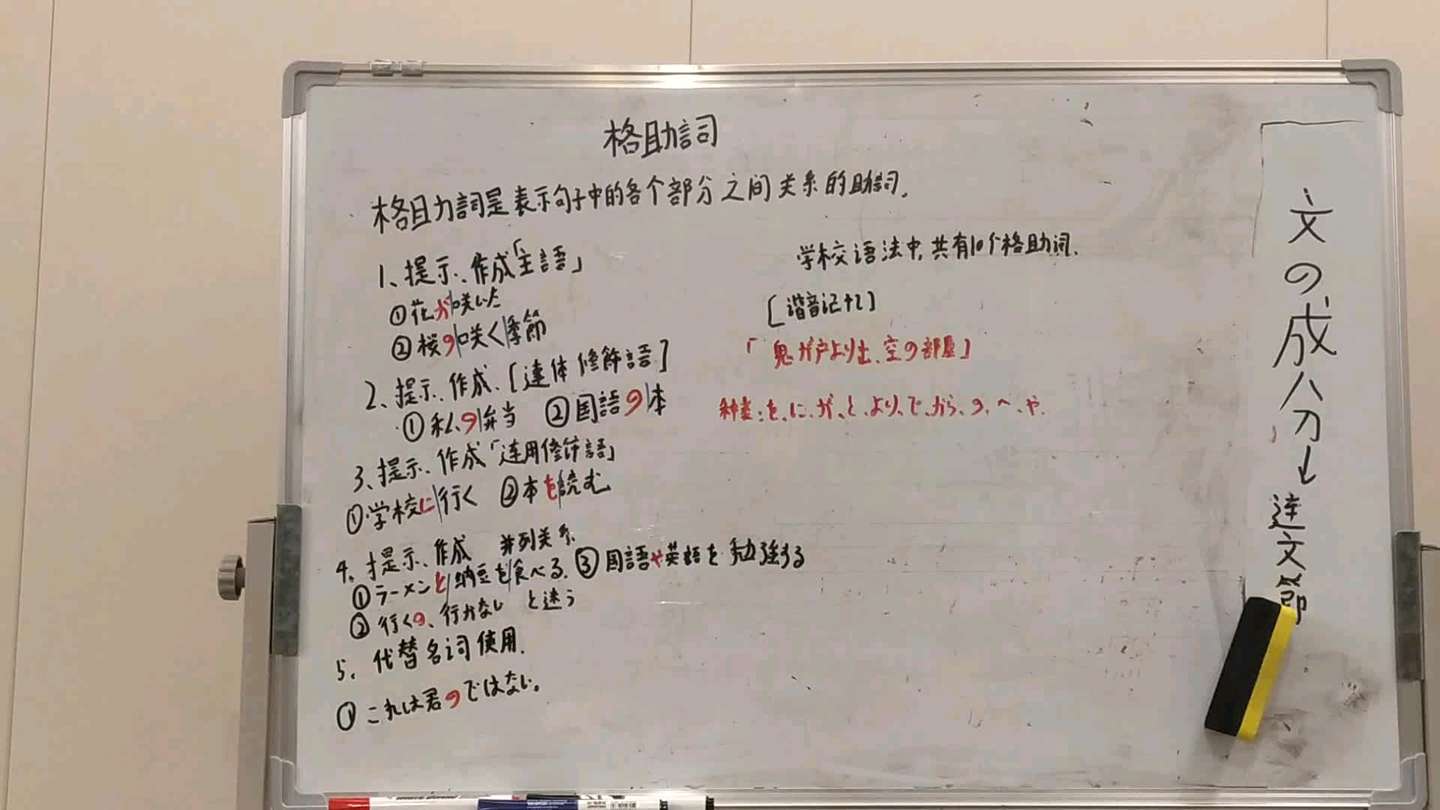 格助詞
格助詞是表示句子中的各个部分之间关系的助詞.
1、提示、作成「主語」
①花が|咲いた
②桜の|咲く|季節
2、提示、作成、[連体修飾語]
①私の|弁当 ②国語の|本
3、提示、作成「连用修飾語」
①学校に|行く ②本を|読む
4、提示、作成 并列关系
①ラーメンと|納豆を|食べる. ③国語や英語を勉強する
②行くの、行かない と迷う
5、代替名词使用.
①これは君のではない。
学校语法中,共有10个格助词.
[谐音记忆]
「鬼が戸より出、空の部屋」
种类:を、に、が、と、より、で、から、の、へ、や.
文の成分→連文節